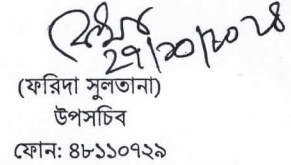 ২৭/১০/২০২৪
(ফরিদা সুলতানা)
উপসচিব
ফোন: ৪৮১১০৭২৯